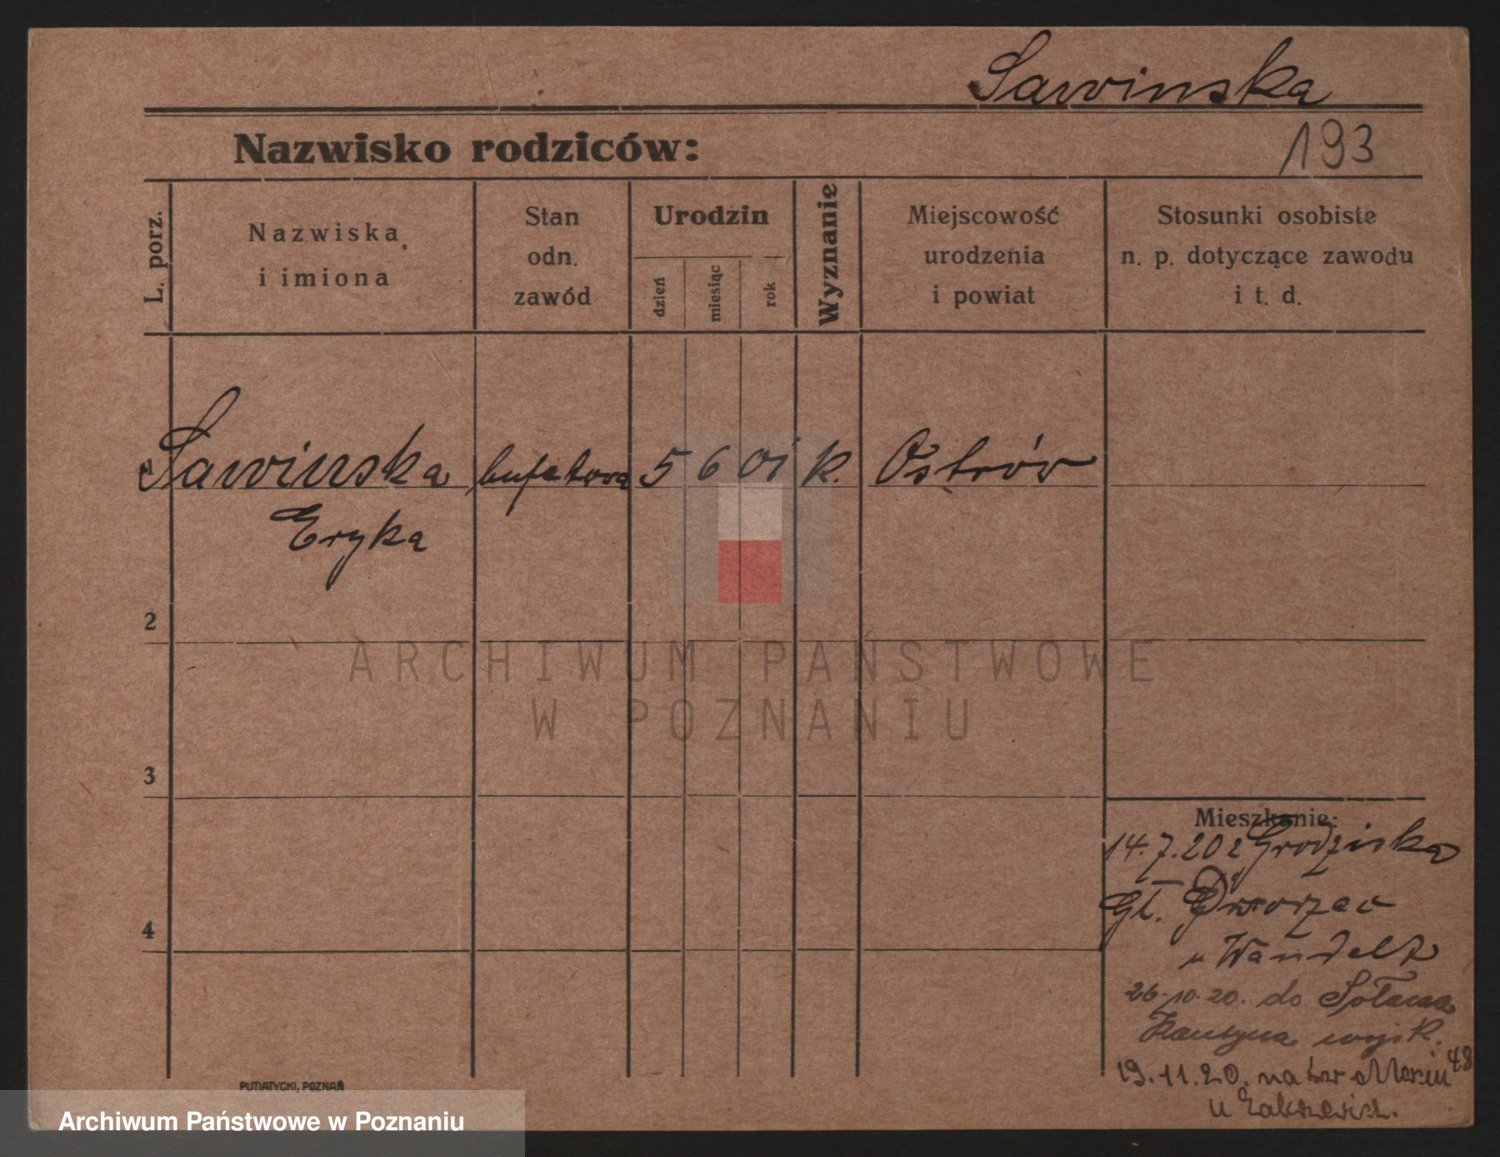 Sawinska
Nazwisko rodziców:
193
L. porz.
Nazwiska
i imiona
Stan
odn.
zawód
Urodzin
dzień
miesiąc
rok
Wyznanie
Miejscowość
urodzenia
i powiat
Stosunki osobiste
n. p. dotyczące zawodu
i t. d.
Sawinska bufetowa 5 6 01 k. Ostrów
Eryka
2
3
4
ARCHIWUM PAŃSTWOWE
W POZNANIU
Mieszkanie:
14.7.20 z Grodziska
Gł. Dworzec
u Wandelt
26.10.20. do Sołacza
Kantyna wojsk.
19.11.20. na św Marcin 48
u
PUTIATYCKI, POZNAŃ
Archiwum Państwowe w Poznaniu